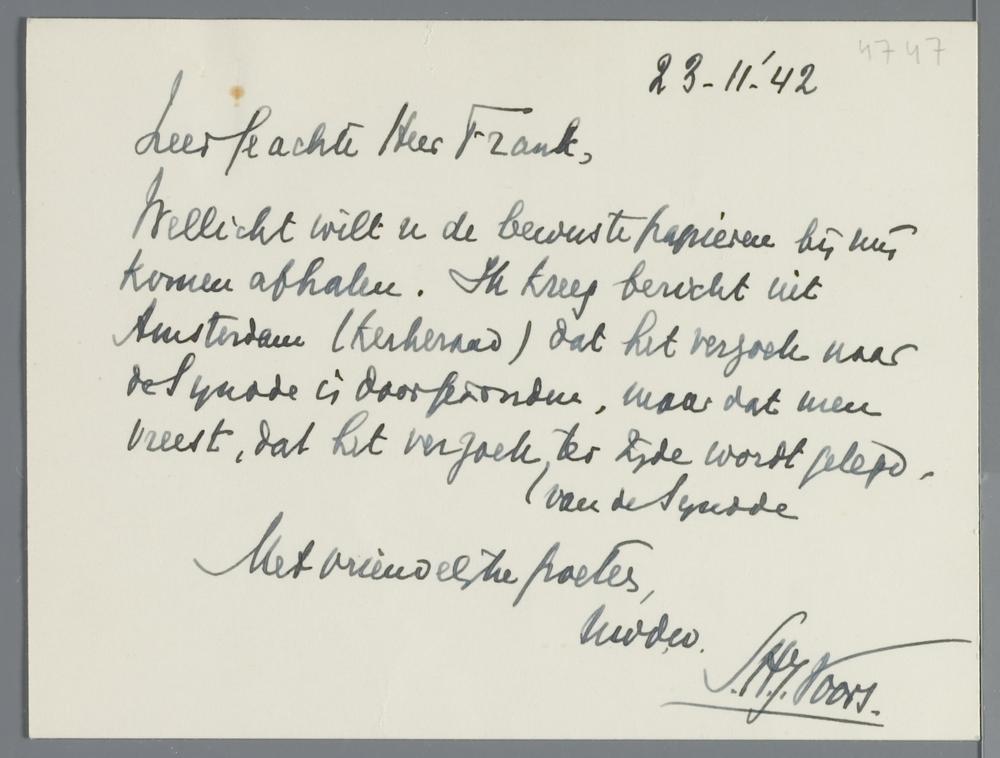 4747
23-11-'42
Zeer geachte Heer Frank,
Wellicht wilt u de bewuste papieren bij mij
komen afhalen. Ik kreeg bericht uit
Amsterdam (kerkeraad) dat het verzoek naar
de Synode is doorgezonden, maar dat men
vreest, dat het verzoek, ter zijde wordt gelegd.
(van de Synode
Met vriendelijke groeten,
Uw dw.
S.H.J. Voors.